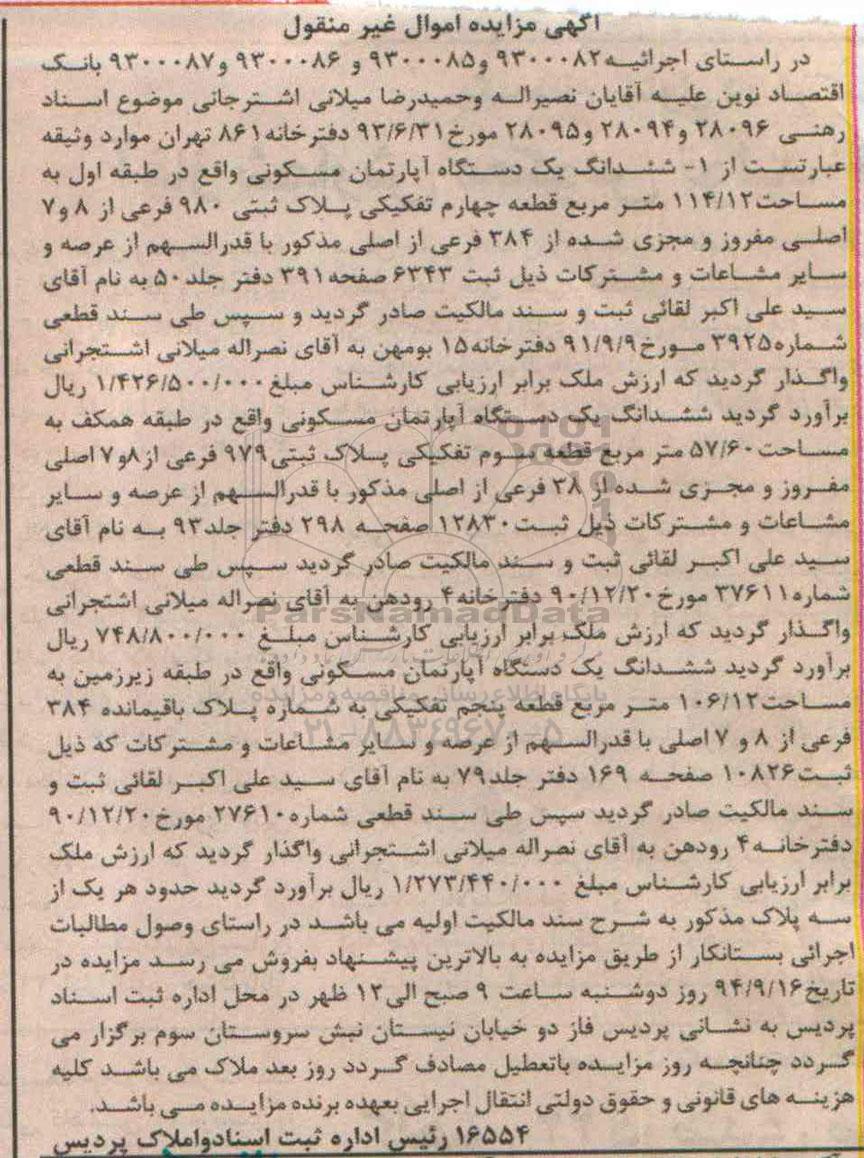 آگهی مزایده اموال غیر منقول
در راستای اجرائیه ۹۳۰۰۰۸۲ و۹۳۰۰۰۸۵ و ۹۳۰۰۰۸۶ و۹۳۰۰۰۸۷ بانک
اقتصاد نوین علیه آقایان نصیراله وحمیدرضا میلانی اشترجانی موضوع اسناد
رهنی ۲۸۰۹۶ و۲۸۰۹۴ و۲۸۰۹۵ مورخ۹۳/۶/۳۱ دفترخانه۸۶۱ تهران موارد وثیقه
عبارتست از ۱- ششدانگ یک دستگاه آپارتمان مسکونی واقع در طبقه اول به
مساحت۱۱۴/۱۲ متر مربع قطعه چهارم تفکیکی پلاک ثبتی ۹۸۰ فرعی از ۸ و۷
اصلی مفروز و مجزی شده از ۳۸۴ فرعی از اصلی مذکور با قدرالسهم از عرصه و
سایر مشاعات و مشترکات ذیل ثبت ۶۳۴۳ صفحه۳۹۱ دفتر جلد۵۰ به نام آقای
سید علی اکبر لقائی ثبت و سند مالکیت صادر گردید و سپس طی سند قطعی
شماره۳۹۲۵ مورخ۹۱/۹/۹ دفترخانه۱۵ بومهن به آقای نصراله میلانی اشتجرانی
واگذار گردید که ارزش ملک برابر ارزیابی کارشناس مبلغ۱/۴۲۶/۵۰۰/۰۰۰ ریال
برآورد گردید ششدانگ یک دستگاه آپارتمان مسکونی واقع در طبقه همکف به
مساحت۵۷/۶۰ متر مربع قطعه سوم تفکیکی پلاک ثبتی۹۷۹ فرعی از۸و۷ اصلی
مفروز و مجزی شده از ۳۸ فرعی از اصلی مذکور با قدرالسهم از عرصه و سایر
مشاعات و مشترکات ذیل ثبت۱۲۸۳۰ صفحه ۲۹۸ دفتر جلد۹۳ به نام آقای
سید علی اکبر لقائی ثبت و سند مالکیت صادر گردید سپس طی سند قطعی
شماره۳۷۶۱۱ مورخ۹۰/۱۲/۲۰ دفترخانه۴ رودهن به آقای نصراله میلانی اشتجرانی
واگذار گردید که ارزش ملک برابر ارزیابی کارشناس مبلغ ۷۴۸/۸۰۰/۰۰۰ ریال
برآورد گردید ششدانگ یک دستگاه آپارتمان مسکونی واقع در طبقه زیرزمین به
مساحت۱۰۶/۱۲ متر مربع قطعه پنجم تفکیکی به شماره پلاک باقیمانده ۳۸۴
فرعی از ۸ و ۷ اصلی با قدرالسهم از عرصه و سایر مشاعات و مشترکات که ذیل
ثبت۱۰۸۲۶ صفحه ۱۶۹ دفتر جلد۷۹ به نام آقای سید علی اکبر لقائی ثبت و
سند مالکیت صادر گردید سپس طی سند قطعی شماره۲۷۶۱۰ مورخ۹۰/۱۲/۲۰
دفترخانه۴ رودهن به آقای نصراله میلانی اشتجرانی واگذار گردید که ارزش ملک
برابر ارزیابی کارشناس مبلغ ۱/۲۷۳/۴۴۰/۰۰۰ ریال برآورد گردید حدود هر یک از
سه پلاک مذکور به شرح سند مالکیت اولیه می باشد در راستای وصول مطالبات
اجرائی بستانکار از طریق مزایده به بالاترین پیشنهاد بفروش می رسد مزایده در
تاریخ۹۴/۹/۱۶ روز دوشنبه ساعت ۹ صبح الی۱۲ ظهر در محل اداره ثبت اسناد
پردیس به نشانی پردیس فاز دو خیابان نیستان نبش سروستان سوم برگزار می
گردد چنانچه روز مزایده باتعطیل مصادف گردد روز بعد ملاک می باشد کلیه
هزینه های قانونی و حقوق دولتی انتقال اجرایی بعهده برنده مزایده می باشد.
۱۶۵۵۴ رئیس اداره ثبت اسنادواملاک پردیس
ParsNamadData
پایگاه اطلاع رسانی مناقصه و مزایده
۰۲۱-۸۸۳۴۹۶۷۰-۵